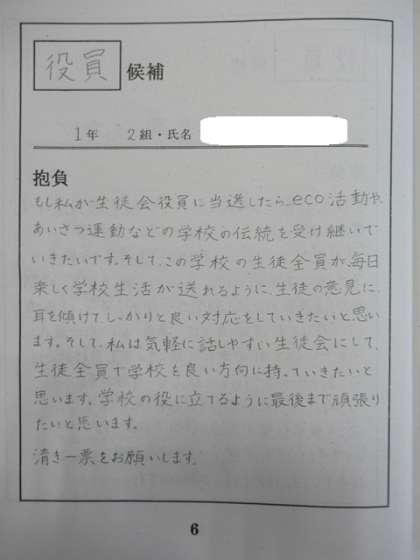 役員 候補
1年 2組・氏名
抱負
もし私が生徒会役員に当選したら、eco活動や、
あいさつ運動などの学校の伝統を受け継いで
いきたいです。そして、この学校の生徒全員が、毎日
楽しく学校生活が送れるように、生徒の意見に、
耳を傾けてしっかりと良い対応をしていきたいと思い
ます。そして、私は気軽に話しやすい生徒会にして、
生徒全員で学校を良い方向に持っていきたいと
思います。学校の役に立てるように最後まで頑張り
たいと思います。
清き一票をお願いします。
6